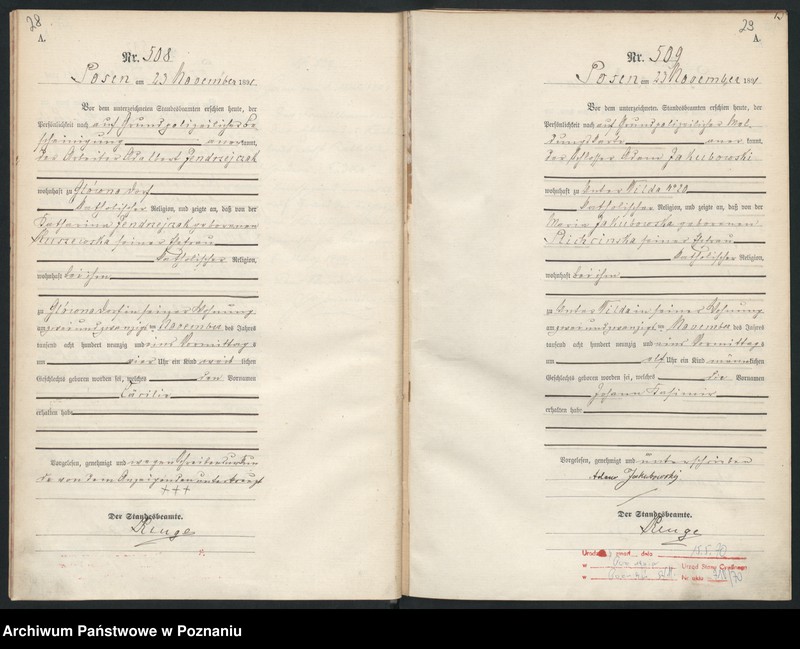 28
A.
Nr. 508
Posen am 23 November 1891
Vor dem unterzeichneten Standesbeamten erschien heute, der
Persönlichkeit nach auf Grund polizeilicher Be
scheinigung anerkannt,
der Arbeiter Adalbert Jendrzejczak
wohnhaft zu Glówno Dorf
katholischer Religion, und zeigte an, daß von der
Katharina Jendrzejczak geborenen
seiner Ehefrau
katholischer Religion,
wohnhaft bei ihm
zu Glówno Dorf in seiner Wohnung
am zwei und zwanzigsten November des Jahres
tausend acht hundert neunzig und eins Vormittags
um vier Uhr ein Kind weiblichen
Geschlechts geboren worden sei, welches den Vornamen
Cäcilie
erhalten habe
Vorgelesen, genehmigt und wegen Schreibensunkun
de von dem Anzeigenden unterkreuzt
+++
Der Standesbeamte.
Renge
29
A.
Nr. 509
Posen am 23 November 1891
Vor dem unterzeichneten Standesbeamten erschien heute, der
Persönlichkeit nach auf Grund polizeilicher Mel
dungskarte anerkannt,
der Schlosser Adam Jakubowski
wohnhaft zu Unter Wilda No 20
katholischer Religion, und zeigte an, daß von der
Maria Jakubowska geborenen
seiner Ehefrau
katholischer Religion,
wohnhaft bei ihm
zu Unter Wilda in seiner Wohnung
am zwei und zwanzigsten November des Jahres
tausend acht hundert neunzig und eins Vormittags
um elf Uhr ein Kind männlichen
Geschlechts geboren worden sei, welches die Vornamen
Johann Kasimir
erhalten habe
Vorgelesen, genehmigt und unterschrieben
Adam Jakubowski
Der Standesbeamte.
Renge
zmarł dnia
w Urząd Stanu Cywilnego
w Nr aktu
Archiwum Państwowe w Poznaniu